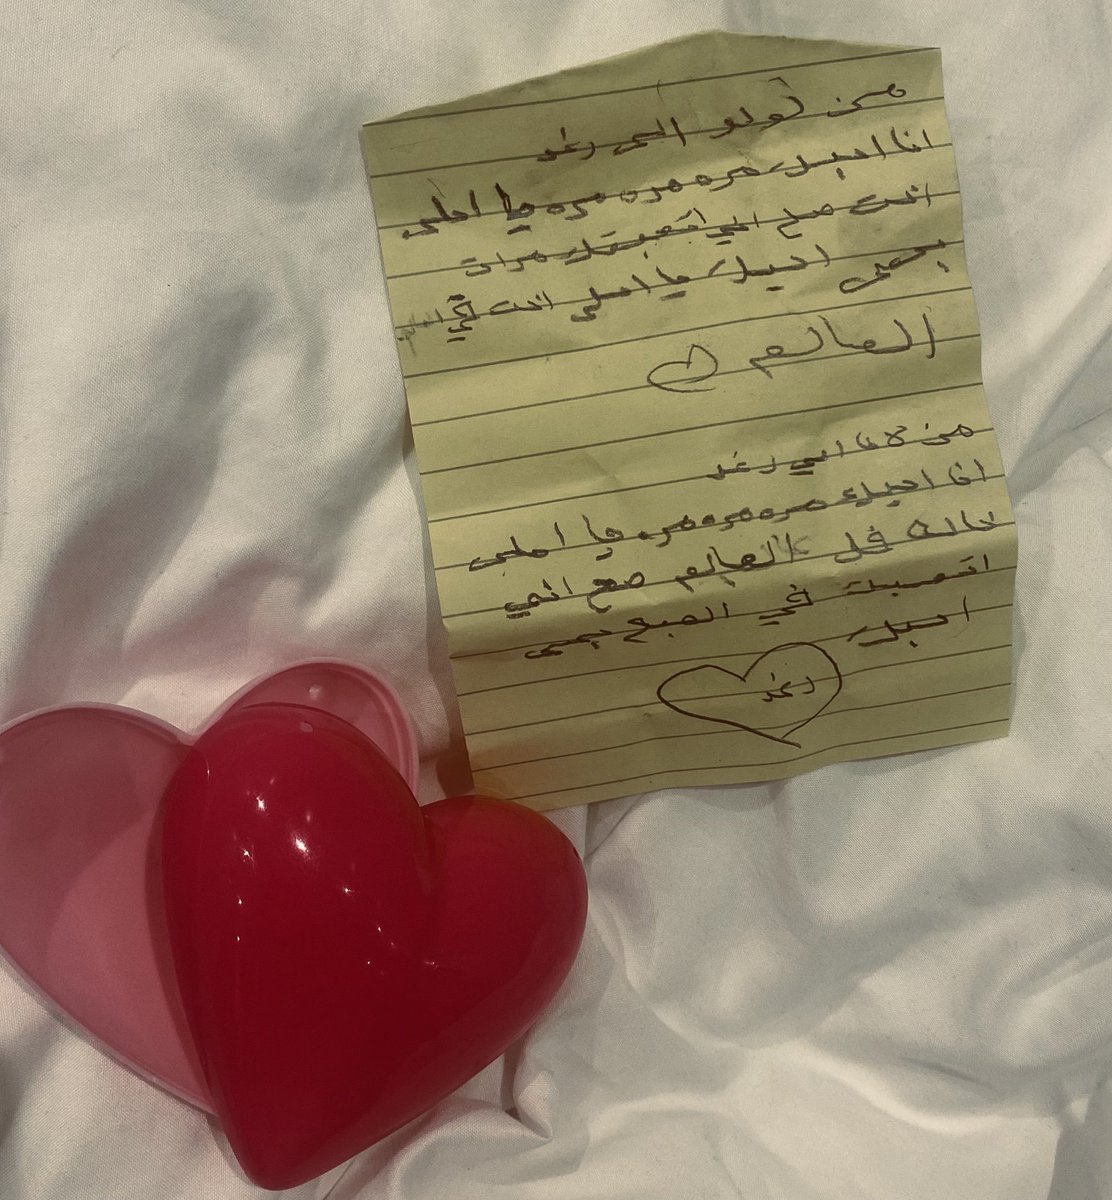 من لولو الى رغد
انا احبك مره مره مره يا احلى
انت صح اني اتعبتك مرات
بحصى احبك يا احلى انت في
العالم
من لانا الي رغد
انا احبك مره مره مره يا احلى
خاله في العالم صح اني
اتعبك في الصبح بس
احبك
رغد